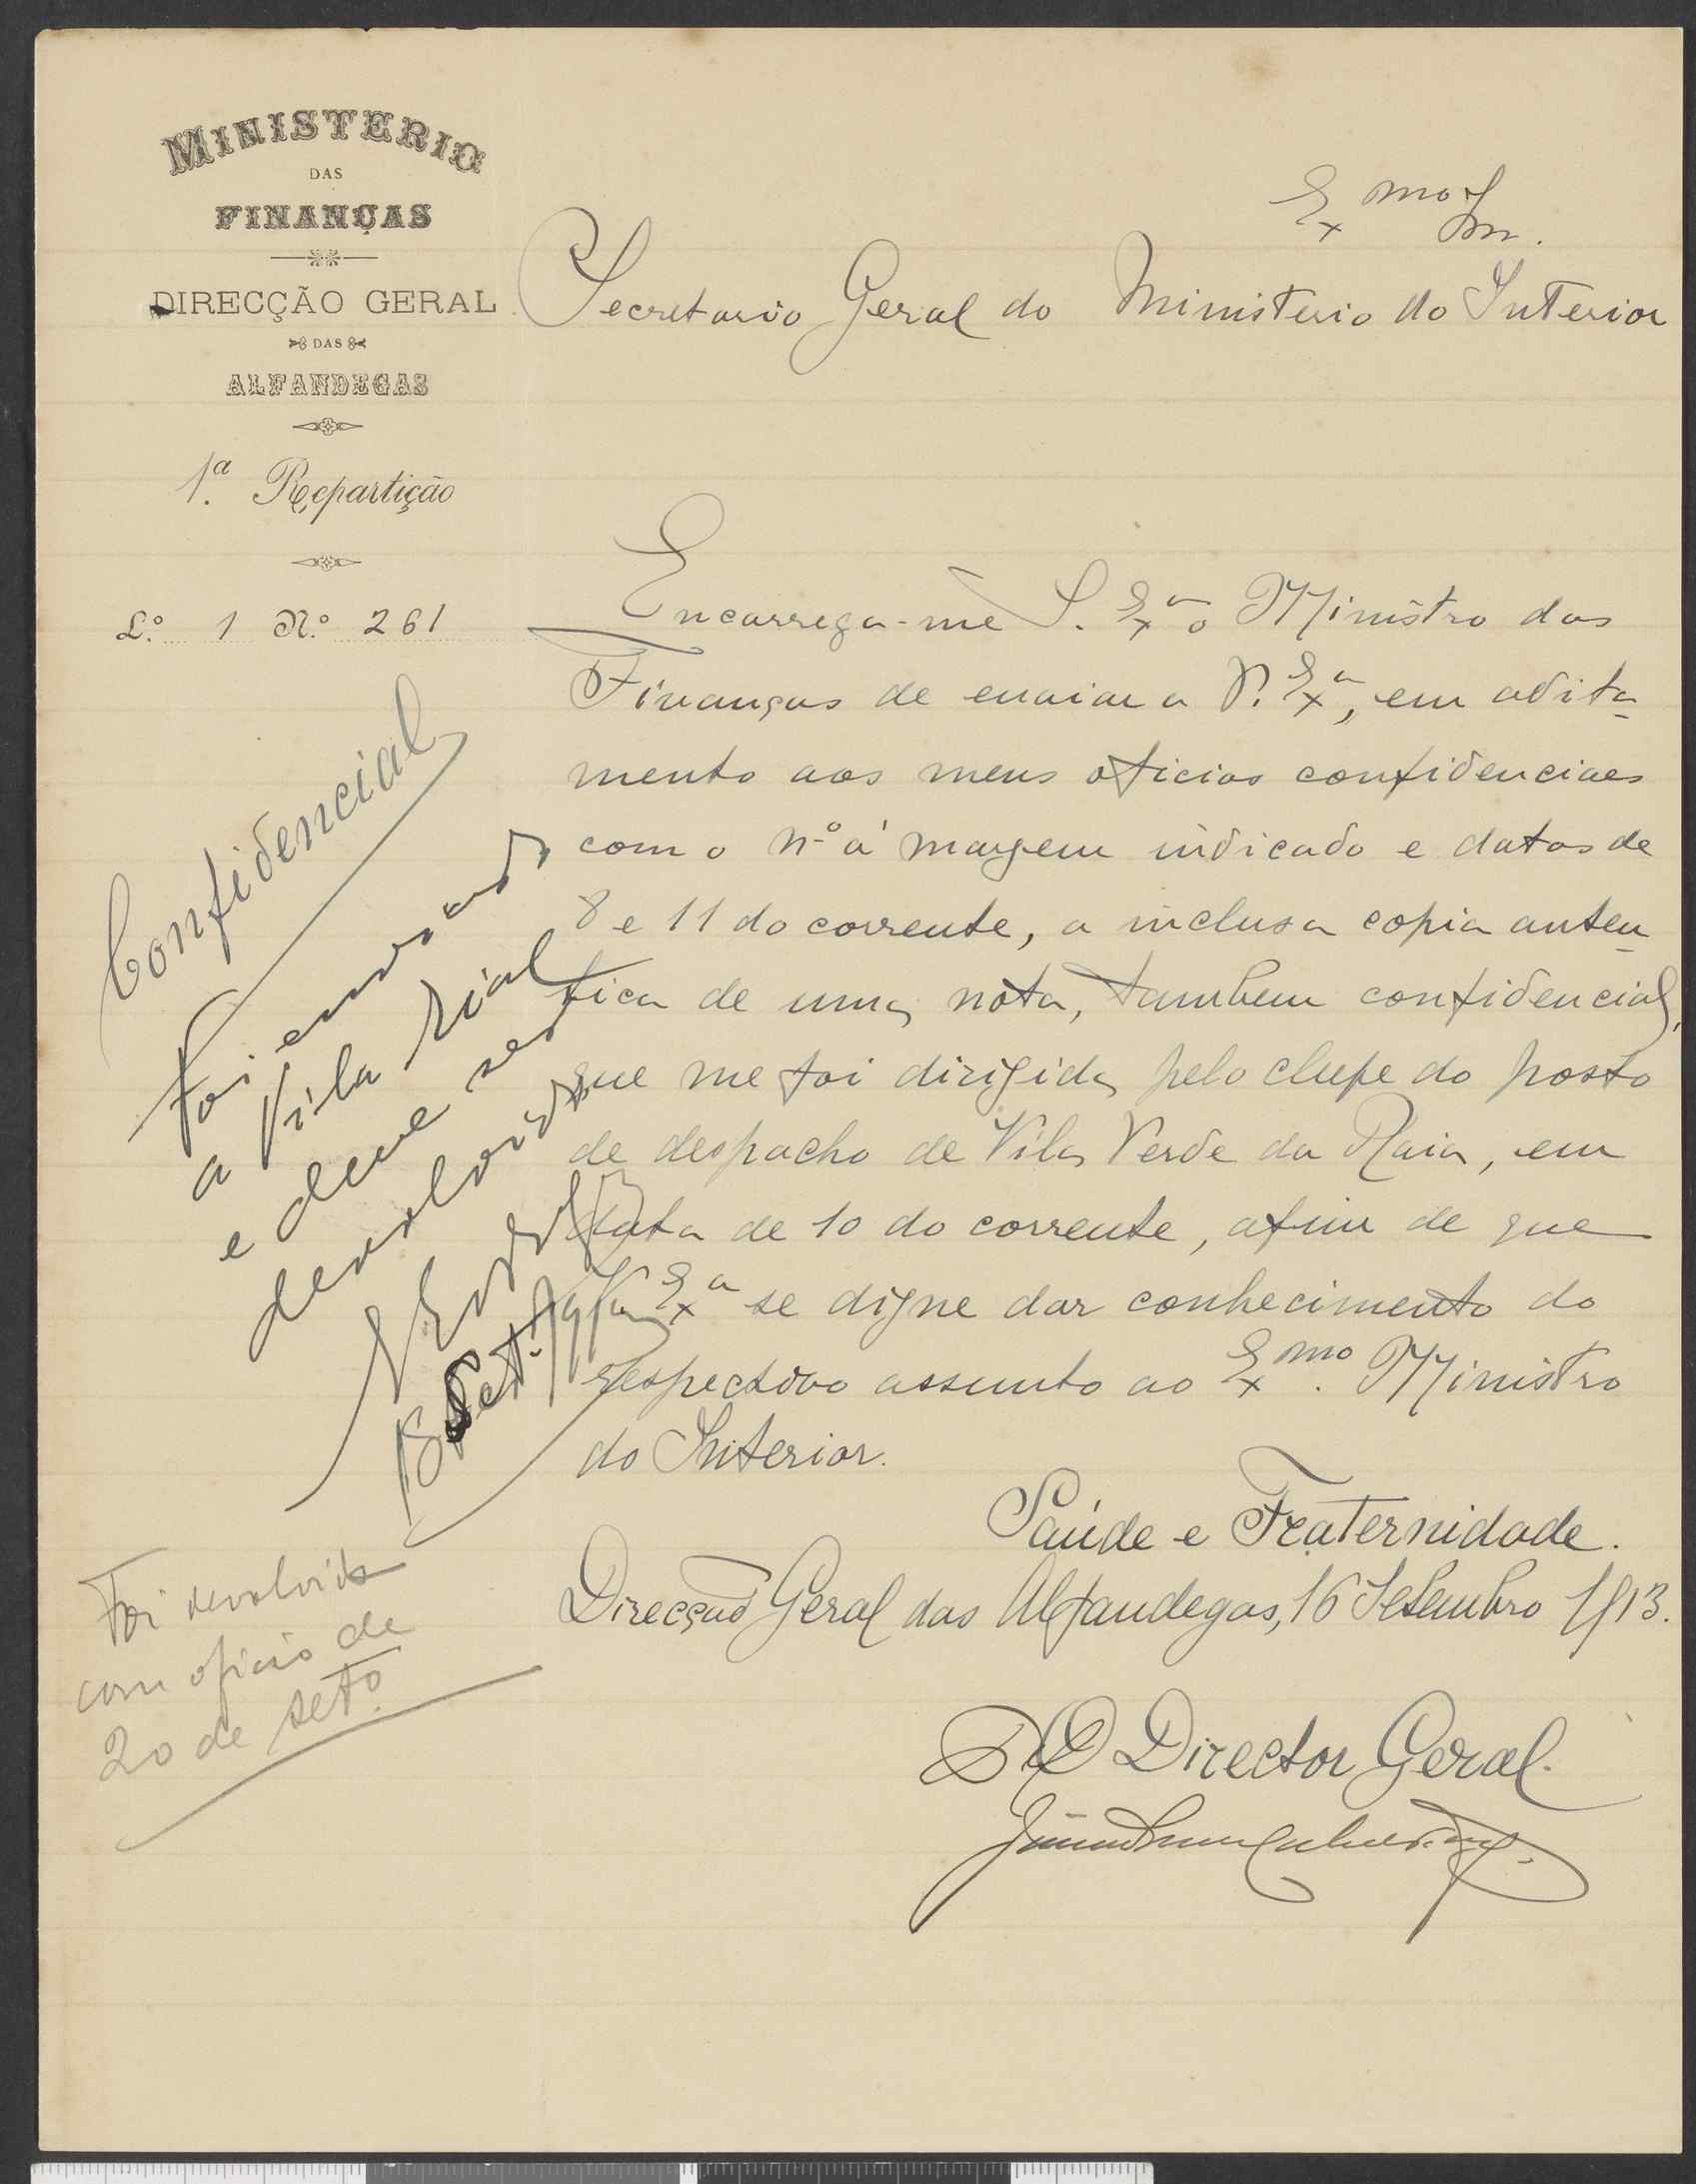 MINISTERIO
DAS
FINANÇAS
DIRECÇÃO GERAL
DAS
ALFANDEGAS
1.ª Repartição
L.º 1 N.º 261
Confidencial
Exmo Snr.
Secretario Geral do Ministerio do Interior
Encarrega-me S. Exª o Ministro das
Finanças de enviar a V. Exª, em adita-
mento aos meus oficios confidenciaes
com o nº á margem indicado e datas de
8 e 11 do corrente, a inclusa copia auten-
tica de uma nota, tambem confidencial,
que me foi dirigida pelo chefe do posto
de despacho de Vila Verde da Raia, em
data de 10 do corrente, afim de que
V. Exª se digne dar conhecimento do
respectivo assunto ao Exmo. Ministro
do Interior.
Saúde e Fraternidade.
Direcção Geral das Alfandegas, 16 Setembro 1913.
O Director Geral.
Foi enviado
a Vila Rial
e deve ser
devolvido
18 Set.
Foi devolvida
com oficio de
20 de setº.